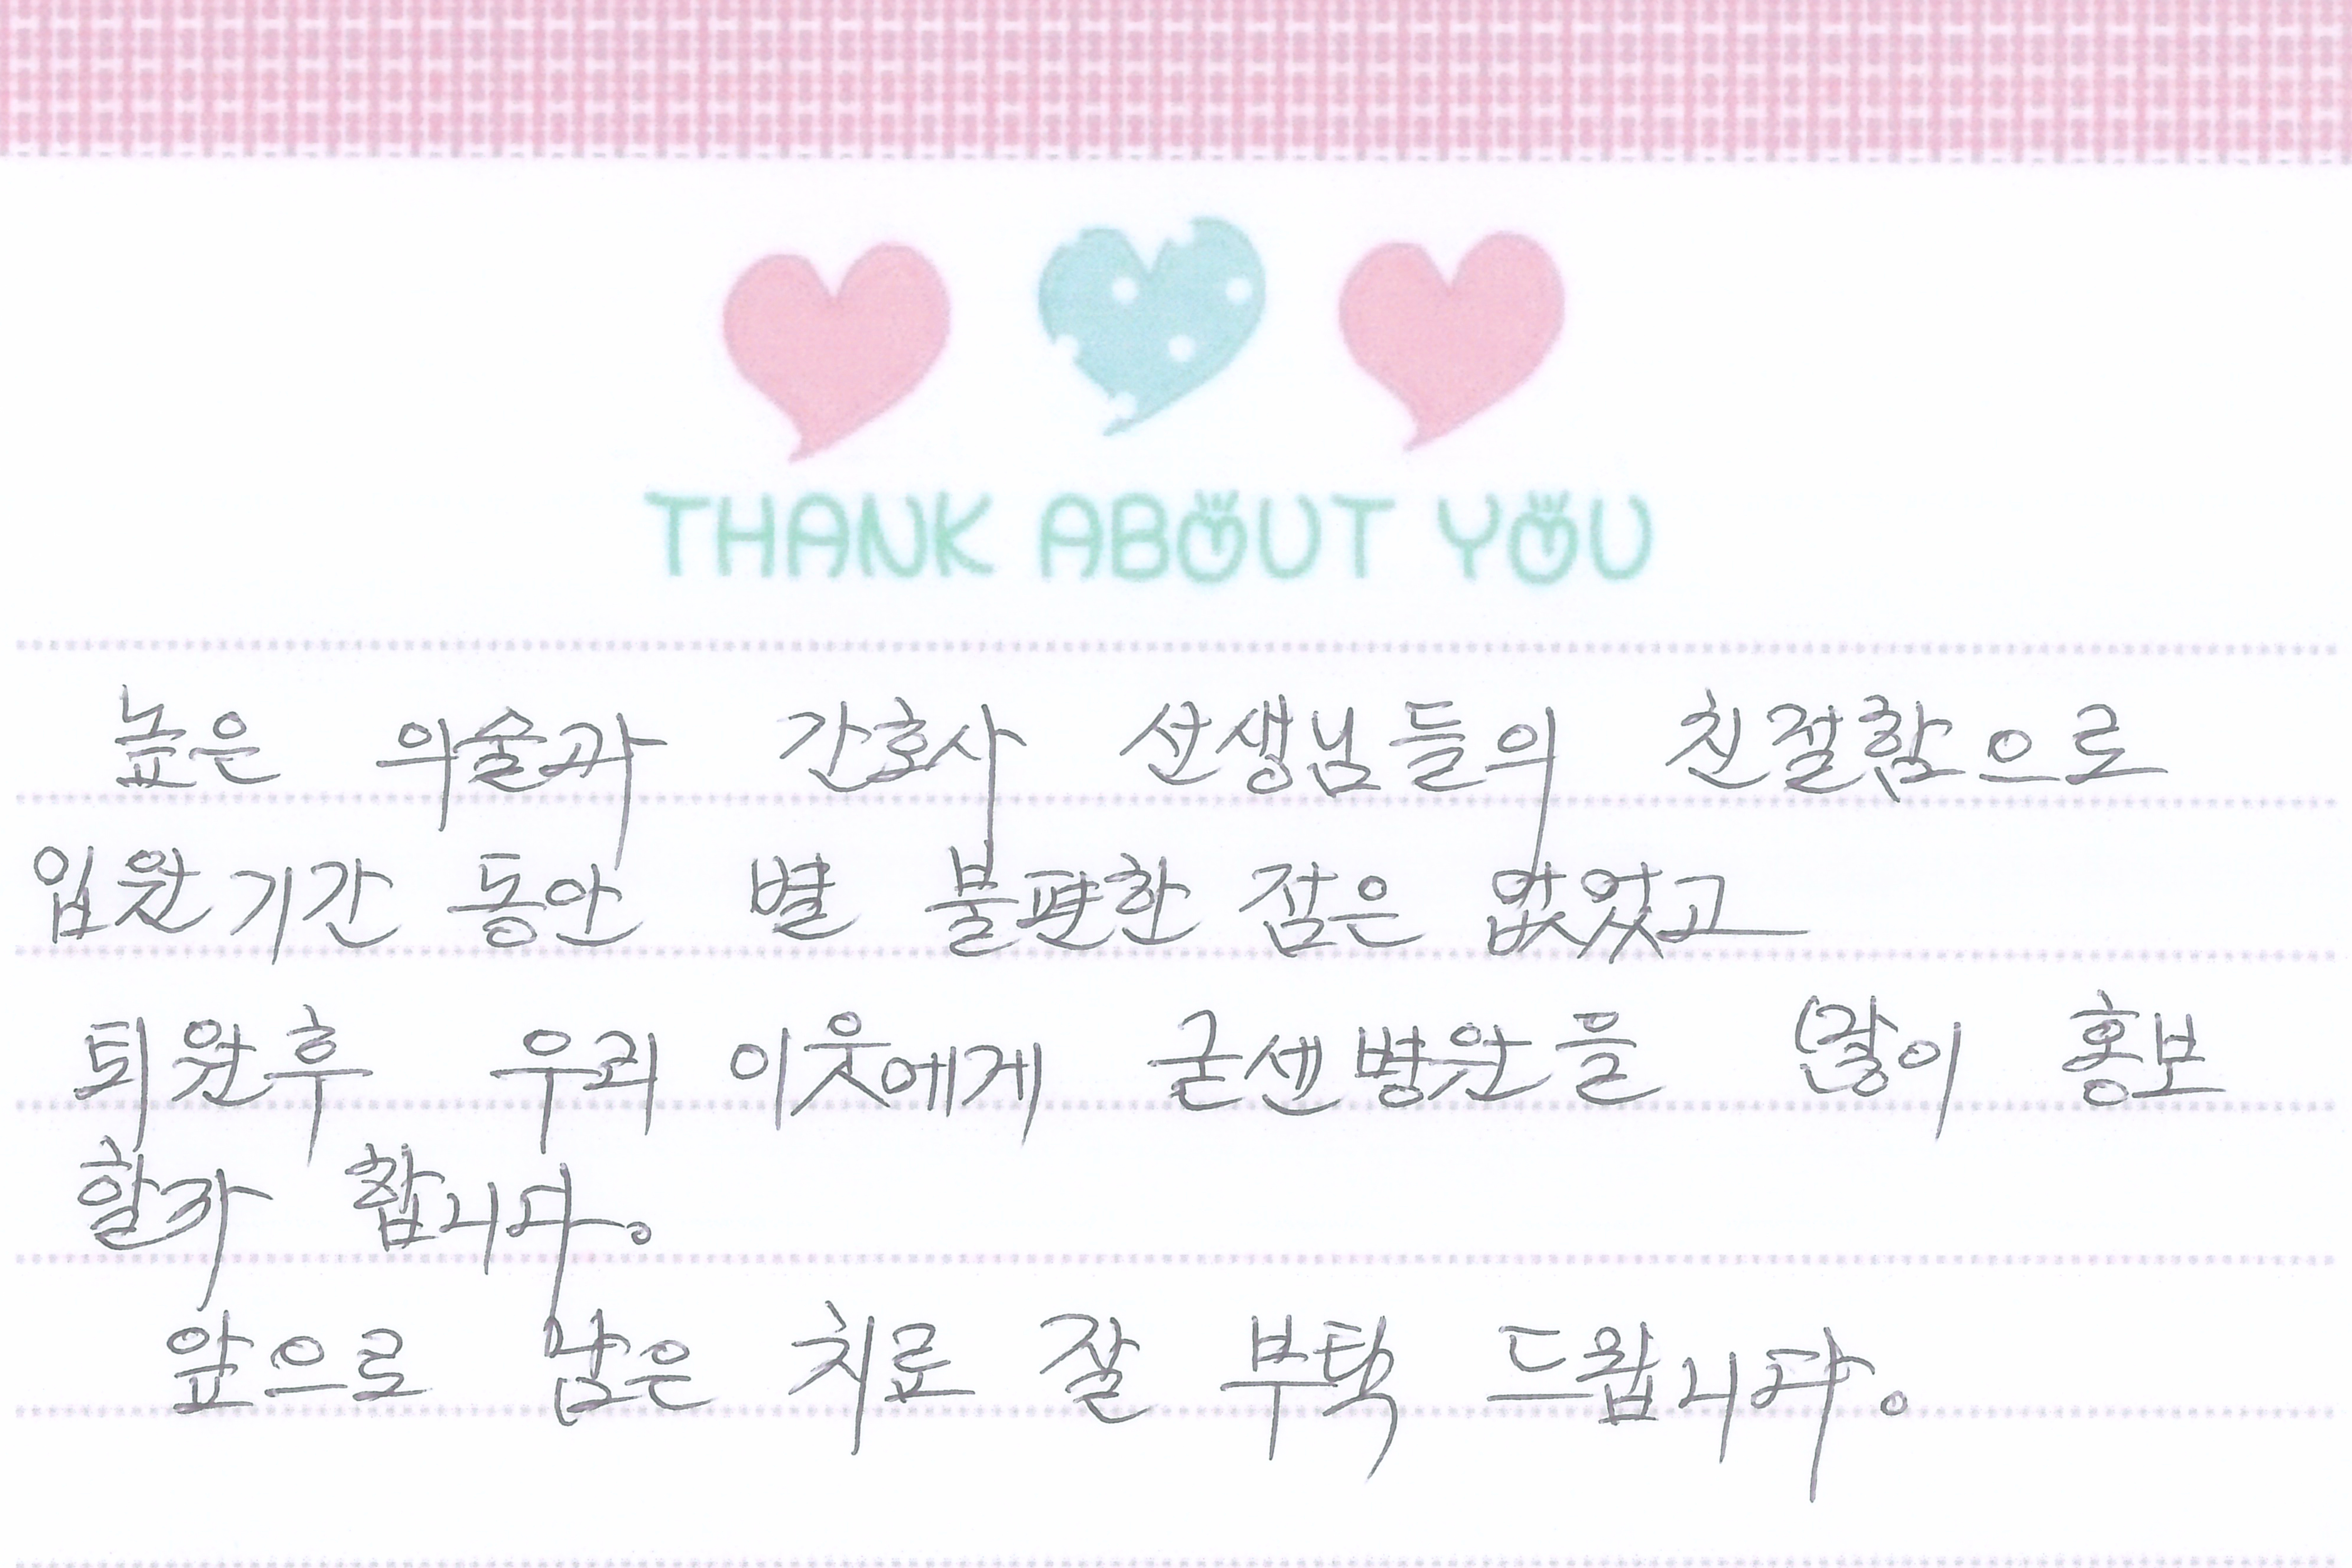 THANK ABOUT YOU
높은 의술과 간호사 선생님들의 친절함으로
입원기간 동안 별 불편한 점은 없었고
퇴원후 우리 이웃에게 굳센병원을 많이 홍보
할까 합니다.
앞으로 남은 치료 잘 부탁 드립니다.